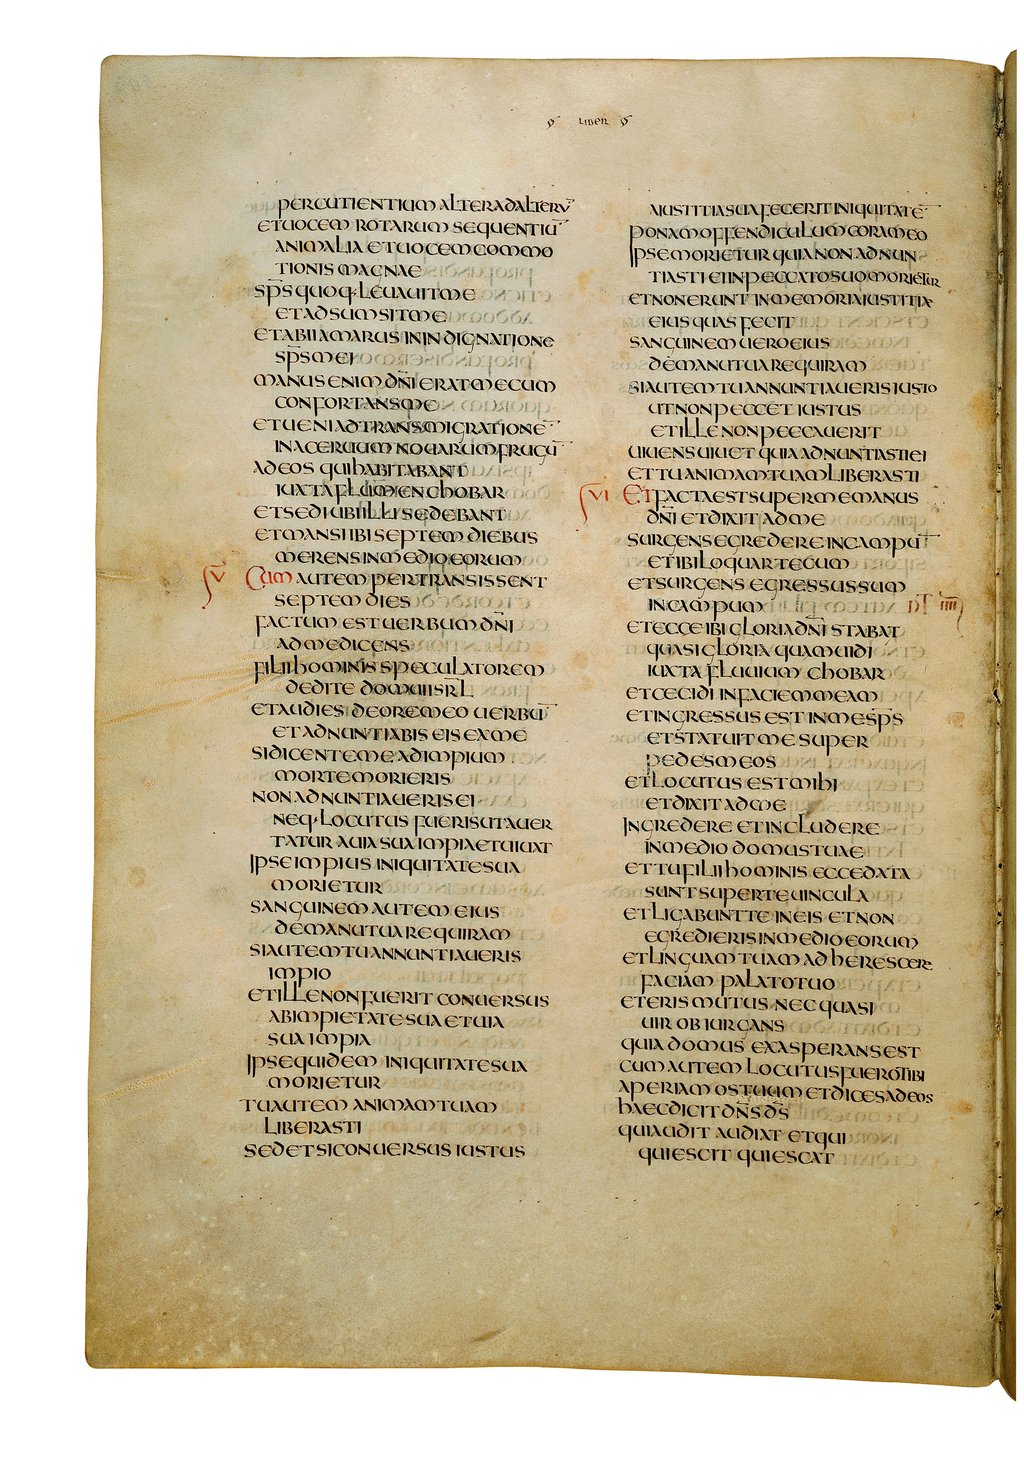 LIBER
PERCUTIENTIUM ALTERADALTERU
ETUOCEM ROTARUM SEQUENTIŪ
ANIMALIA ETUOCEM COMMO
TIONIS MAGNAE
SP̄S QUOQ· LEUAUIT ME
ETADSUMSIT ME
ETABII AMARUS ININDIGNATIONE
SP̄S MEI
MANUS ENIM DN̄I ERAT MECUM
CONFORTANS ME
ETUENI AD TRANSMIGRATIONĒ
INACERUUM NOUARUM FRUGŪ
ADEOS QUI HABITABANT
IUXTA FLUMEN CHOBAR
ETSEDI UBI ILLI SEDEBANT
ETMANSI IBI SEPTEM DIEBUS
MERENS IN MEDIO EORUM
V CUM AUTEM PERTRANSISSENT
SEPTEM DIES
FACTUM EST UERBUM DN̄I
AD ME DICENS
FILII HOMINIS SPECULATOREM
DEDI TE DOMUI ISR̄L
ETAUDIES DE ORE MEO UERBŪ
ETADNUNTIABIS EIS EX ME
SI DICENTE ME AD IMPIUM
MORTE MORIERIS
NON ADNUNTIAUERIS EI
NEQ· LOCUTUS FUERIS UT AUER
TATUR A UIA SUA IMPIA ET UIUAT
IPSE IMPIUS INIQUITATE SUA
MORIETUR
SANGUINEM AUTEM EIUS
DE MANU TUA REQUIRAM
SI AUTEM TU ANNUNTIAUERIS
IMPIO
ET ILLE NON FUERIT CONUERSUS
AB IMPIETATE SUA ET UIA
SUA IMPIA
IPSE QUIDEM INIQUITATE SUA
MORIETUR
TU AUTEM ANIMAM TUAM
LIBERASTI
SED ET SI CONUERSUS IUSTUS
A IUSTITIA SUA FECERIT INIQUITATĒ
PONAM OFFENDICULUM CORAM EO
IPSE MORIETUR QUIA NON ADNUN
TIASTI EI IN PECCATO SUO MORIETUR
ET NON ERUNT IN MEMORIA IUSTITIAE
EIUS QUAS FECIT
SANGUINEM UERO EIUS
DE MANU TUA REQUIRAM
SI AUTEM TU ANNUNTIAUERIS IUSTO
UT NON PECCET IUSTUS
ET ILLE NON PECCAUERIT
UIUENS UIUET QUIA ADNUNTIASTI EI
ET TU ANIMAM TUAM LIBERASTI
VI ET FACTA EST SUPER ME MANUS
DN̄I ET DIXIT AD ME
SURGENS EGREDERE IN CAMPŪ
ET IBI LOQUAR TECUM
ET SURGENS EGRESSUS SUM
IN CAMPUM
ET ECCE IBI GLORIA DN̄I STABAT
QUASI GLORIA QUAM UIDI
IUXTA FLUUIUM CHOBAR
ET CECIDI IN FACIEM MEAM
ET INGRESSUS EST IN ME SP̄S
ET STATUIT ME SUPER
PEDES MEOS
ET LOCUTUS EST MIHI
ET DIXIT AD ME
INGREDERE ET INCLUDERE
IN MEDIO DOMUS TUAE
ET TU FILII HOMINIS ECCE DATA
SUNT SUPER TE UINCULA
ET LIGABUNT TE IN EIS ET NON
EGREDIERIS IN MEDIO EORUM
ET LINGUAM TUAM ADHERESCERE
FACIAM PALATO TUO
ET ERIS MUTUS NEC QUASI
UIR OBIURGANS
QUIA DOMUS EXASPERANS EST
CUM AUTEM LOCUTUS FUERO TIBI
APERIAM OS TUUM ET DICES AD EOS
HAEC DICIT DN̄S DS̄
QUI AUDIT AUDIAT ET QUI
QUIESCIT QUIESCAT